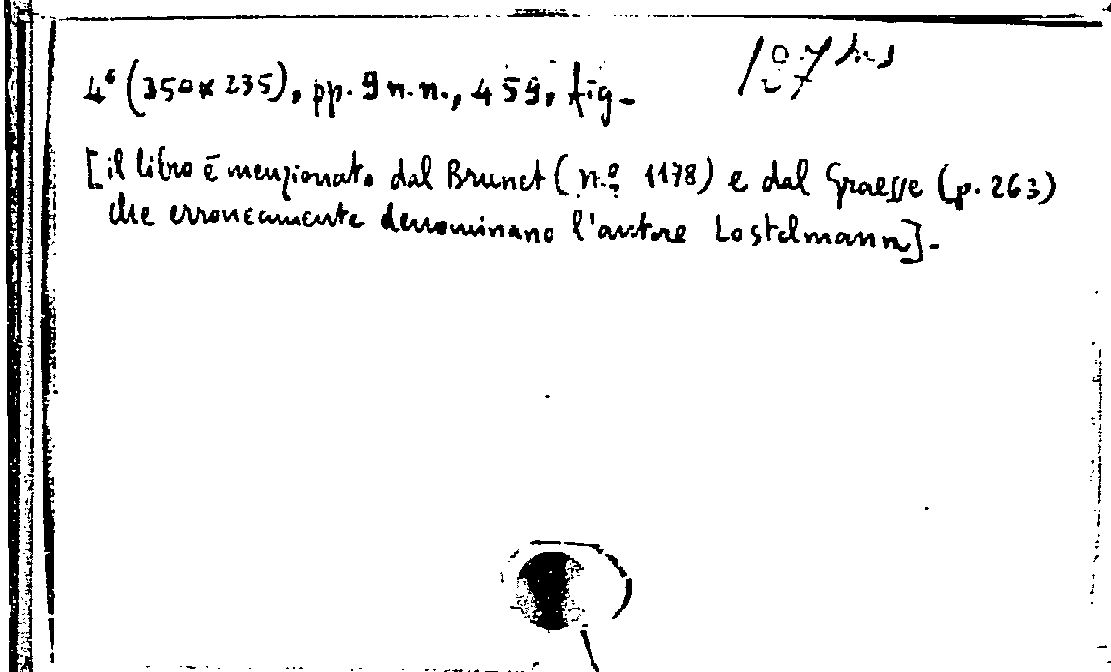 4° (350 x 235), pp. 9 n.n., 459, fig.
[il libro è menzionato dal Brunet (n.° 1178) e dal Graesse (p. 263)
che erroneamente denominano l'autore Lostelmann].